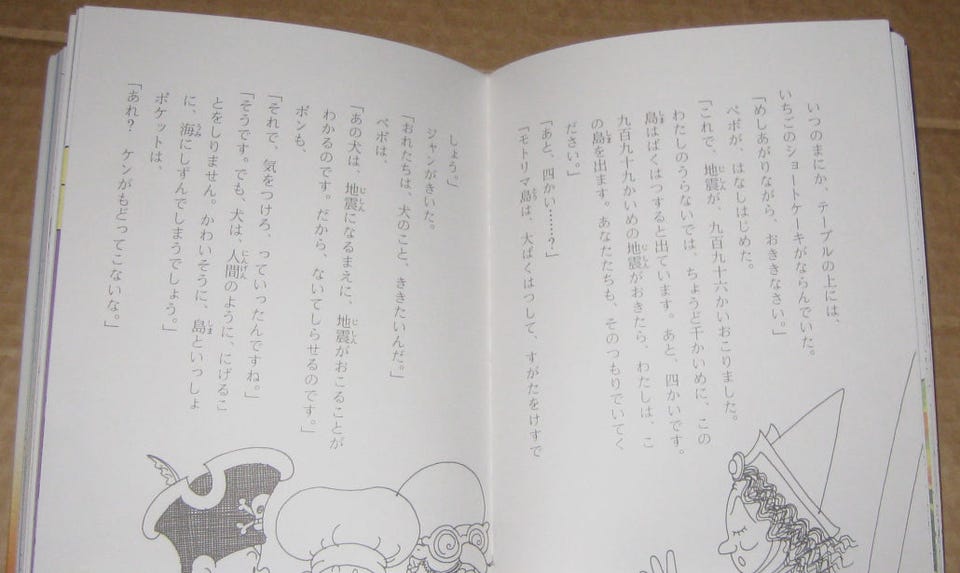 いつのまにか、テーブルの上には、
いちごのショートケーキがならんでいた。
「めしあがりながら、おききなさい。」
ペポが、はなしはじめた。
「これで、地震が、九百九十六かいおこりました。
わたしのうらないでは、ちょうど千かいめに、この
島はばくはつすると出ています。あと、四かいです。
九百九十九かいめの地震がおきたら、わたしは、こ
の島を出ます。あなたたちも、そのつもりでいてく
ださい。」
「あと、四かい……？」
「モトリマ島は、大ばくはつして、すがたをけすで
しょう。」
ジャンがきいた。
「おれたちは、犬のこと、ききたいんだ。」
ペポは、
「あの犬は、地震になるまえに、地震がおこることが
わかるのです。だから、ないてしらせるのです。」
ボンも、
「それで、気をつけろ、っていったんですね。」
「そうです。でも、犬は、人間のように、にげるこ
とをしりません。かわいそうに、島といっしょ
に、海にしずんでしまうでしょう。」
ポケットは、
「あれ？　ケンがもどってこないな。」